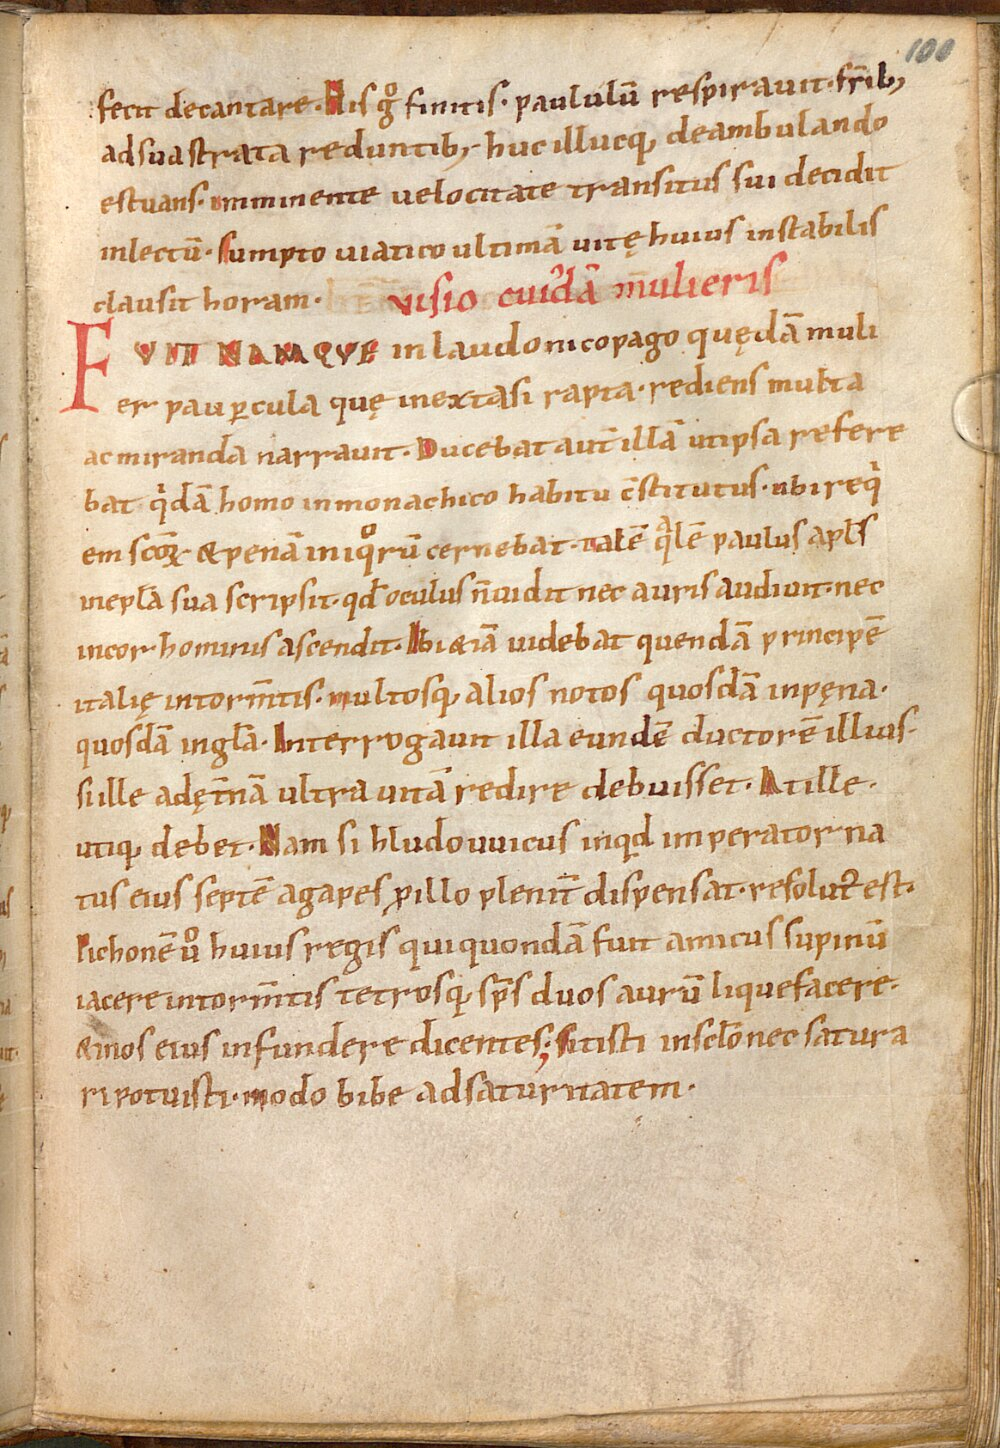 100
fecit decantare. His g͛o finitis. paululū respirauit. fr̄ib;
ad sua strata reduntib;. huc illucq; deambulando
estuans. imminente uelocitate transitus sui decidit
inlectū. Sumpto uiatico ultimā uitę huius instabilis
clausit horam.
visio cuiꝰdā mulieris
FVIT NAMQVE in laudonico pago quędā muli
er paupcula quę inextasi rapta. rediens multa
ac miranda narrauit. Ducebat aut̄ illā ut ipsa refere
bat qͥdā homo inmonachico habitu c̄stitutus. ubi reqͥ
em scōꝝ & penā iniqͦrū cernebat. talē qͣlē paulus apl̄s
inepl̄a sua scripsit. qđ oculus n̄ uidit nec auris audiuit. nec
incor hominis ascendit. Ibi &iā uidebat quendā principē
italię intorm̄tis. multosq; alios notos quosdā inpęna.
quosdā ingl̄a. Interrogauit illa eundē ductorē illius.
si ille adęt̄nā ultra uitā redire debuisset. At ille.
utiq; debet. Nam si hludouuicus inqd imperator na
tus eius septē agapes ꝓ illo plenit̄ dispensat. resolut᷒ est.
Pichonē uͦ huius regis qui quondā fuit amicus supinū
iacere intorm̄tis tetrosq; sp̄s duos aurū liquefacere.
& inos eius infundere dicentes; Sitisti insclo nec satura
ri potuisti. modo bibe ad saturitatem.